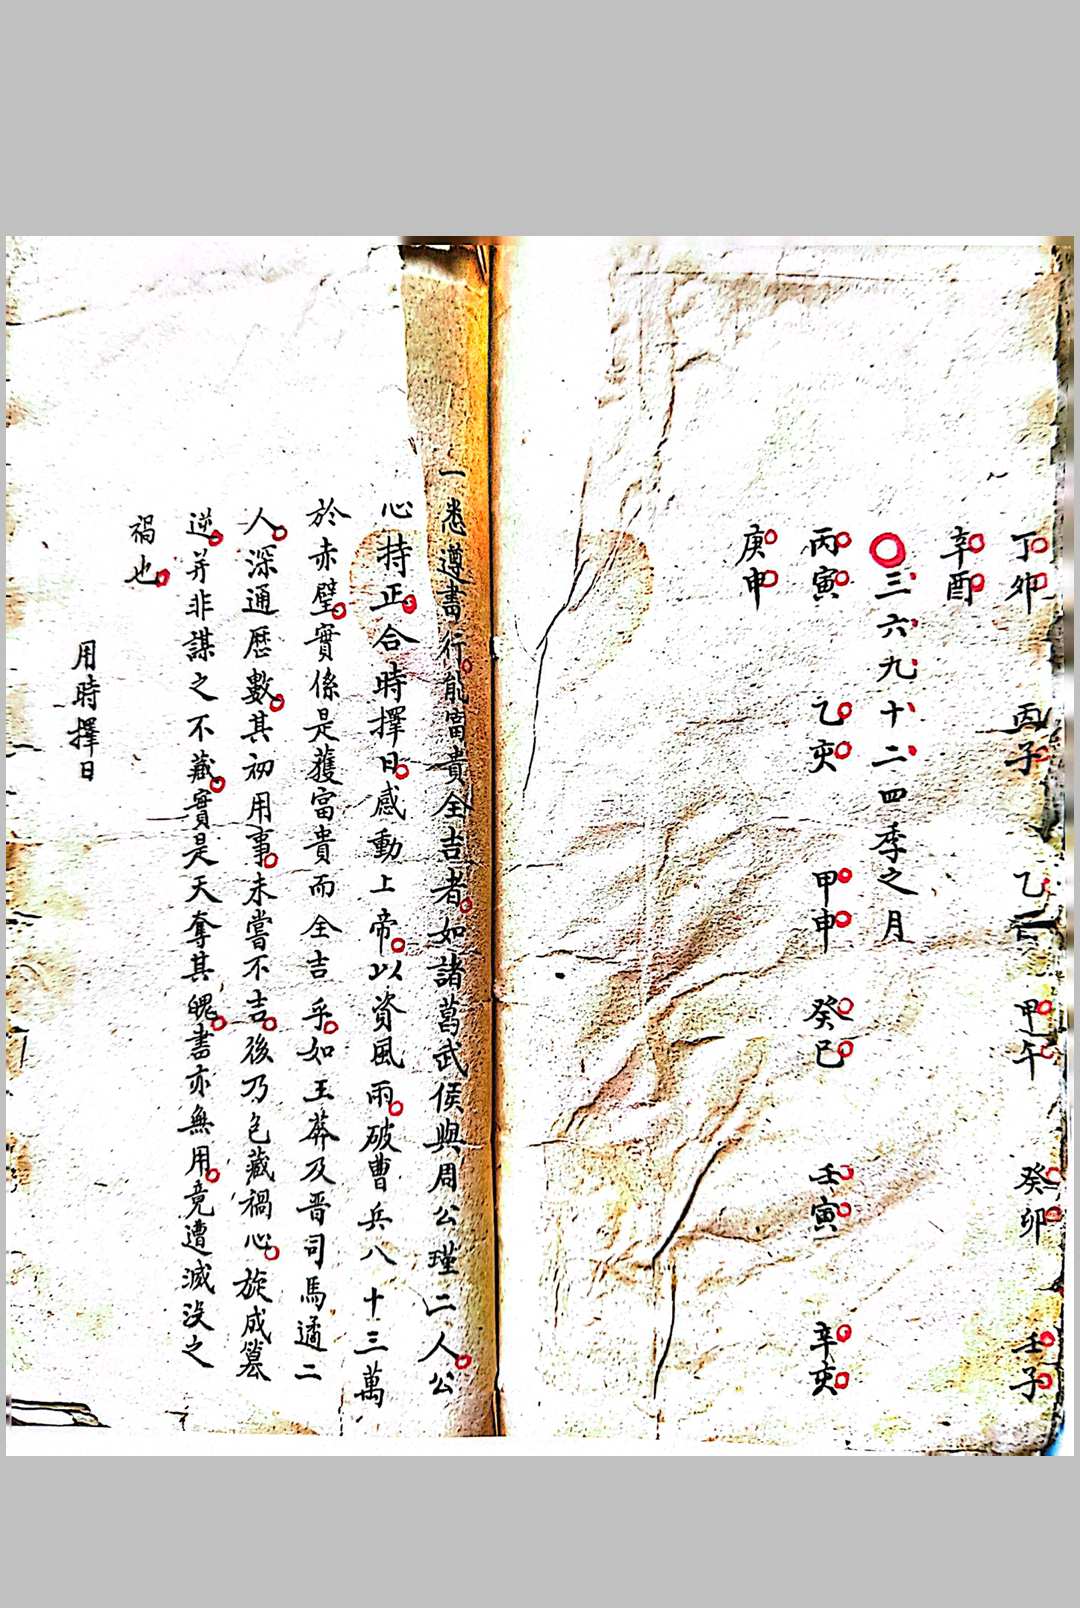 丁卯 丙子 乙酉 甲午 癸卯 壬子
辛酉
三六九十二四季之月
丙寅 乙亥 甲申 癸巳 壬寅 辛亥
庚申
一悉遵書行能富貴全吉者如諸葛武侯與周公瑾二人公
心持正合時擇日感動上帝以資風雨破曹兵八十三萬
於赤壁實係是獲富貴而全吉乎如王莽及晋司馬遹二
人深通曆數其初用事未嘗不吉後乃包藏禍心旋成篡
逆并非謀之不藏實是天奪其魄書亦無用竟遭滅没之
禍也
用時擇日